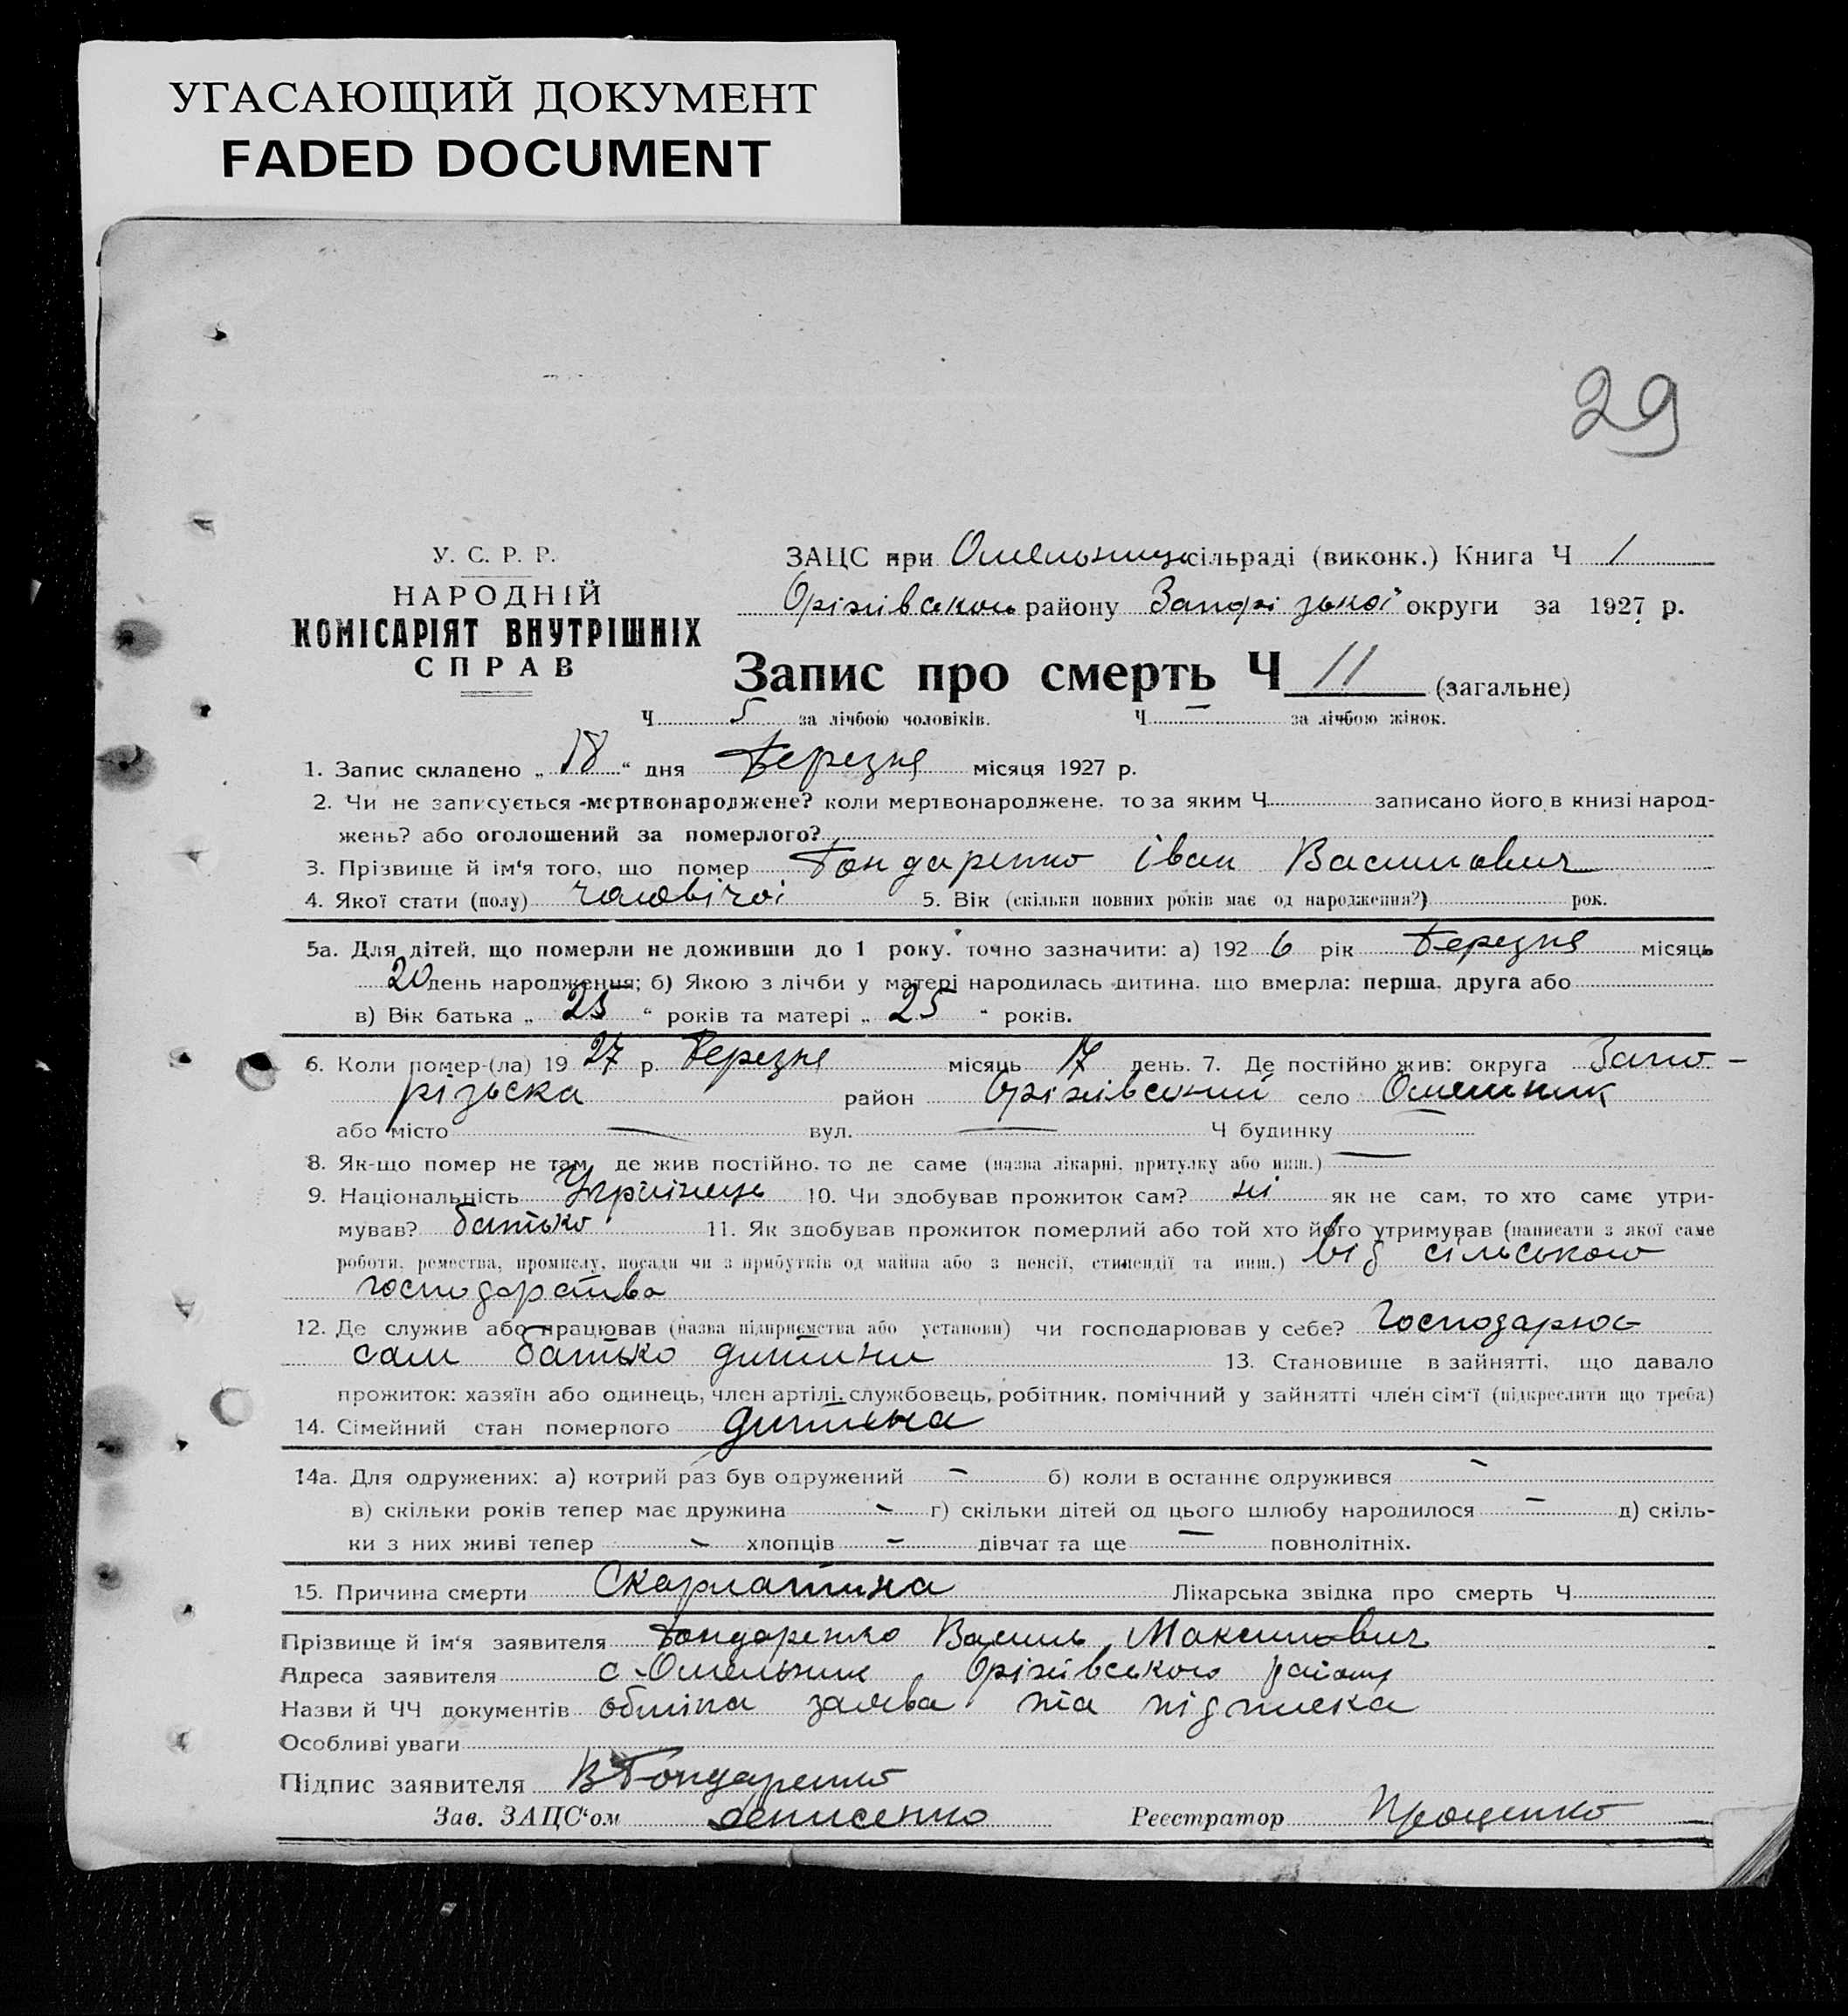 УГАСАЮЩИЙ ДОКУМЕНТ
FADED DOCUMENT
29
У. С. Р. Р.
НАРОДНІЙ
КОМІСАРІЯТ ВНУТРІШНІХ
СПРАВ
ЗАЦС при Омельниц. сільраді (виконк.) Книга Ч 1
Оріхівського району Запорізької округи за 1927 р.
Запис про смерть Ч 11 (загальне)
Ч 5 за лічбою чоловіків. Ч — за лічбою жінок.
1. Запис складено „ 18 “ дня Березня місяця 1927 р.
2. Чи не записується -мертвонароджене? коли мертвонароджене, то за яким Ч записано його в книзі народ-
жень? або оголошений за померлого?
3. Прізвище й ім'я того, що помер Бондаренко Іван Василович
4. Якої стати (полу) чоловічої 5. Вік (скільки повних років має од народження?) рок.
5а. Для дітей, що померли не доживши до 1 року. точно зазначити: а) 192 6 рік Березня місяць
20 день народження; б) Якою з лічби у матері народилась дитина, що вмерла: перша, друга або
в) Вік батька „ 25 “ років та матері „ 25 “ років.
6. Коли помер-(ла) 19 27 р. Березня місяць 17 день. 7. Де постійно жив: округа Запо-
різьска район Оріхівський село Омельник
або місто — вул. — Ч будинку
8. Як-що помер не там, де жив постійно, то де саме (назва лікарні, притулку або инш.) —
9. Національність Українець 10. Чи здобував прожиток сам? ні як не сам, то хто саме утри-
мував? батько 11. Як здобував прожиток померлий або той хто його утримував (написати з якої саме
роботи, ремества, промислу, посади чи з прибутків од майна або з пенсії, стипендії та инш.) від сільського
господарства
12. Де служив або працював (назва підприємства або установи) чи господарював у себе? Господарює
сам батько дитини 13. Становище в зайнятті, що давало
прожиток: хазяїн або одинець, член артілі, службовець, робітник, помічний у зайнятті член сім'ї (підкреслити що треба)
14. Сімейний стан померлого дитина
14а. Для одружених: а) котрий раз був одружений — б) коли в останнє одружився —
в) скільки років тепер має дружина — г) скільки дітей од цього шлюбу народилося — д) скіль-
ки з них живі тепер — хлопців — дівчат та ще — повнолітніх.
15. Причина смерти Скарлатина Лікарська звідка про смерть Ч
Прізвище й ім'я заявителя Бондаренко Василь Максимович
Адреса заявителя с. Омельник Оріхівського району
Назви й ЧЧ документів заява та підписка
Особливі уваги
Підпис заявителя В Бондаренко
Зав. ЗАЦС'ом Денисенко Реєстратор Проценко